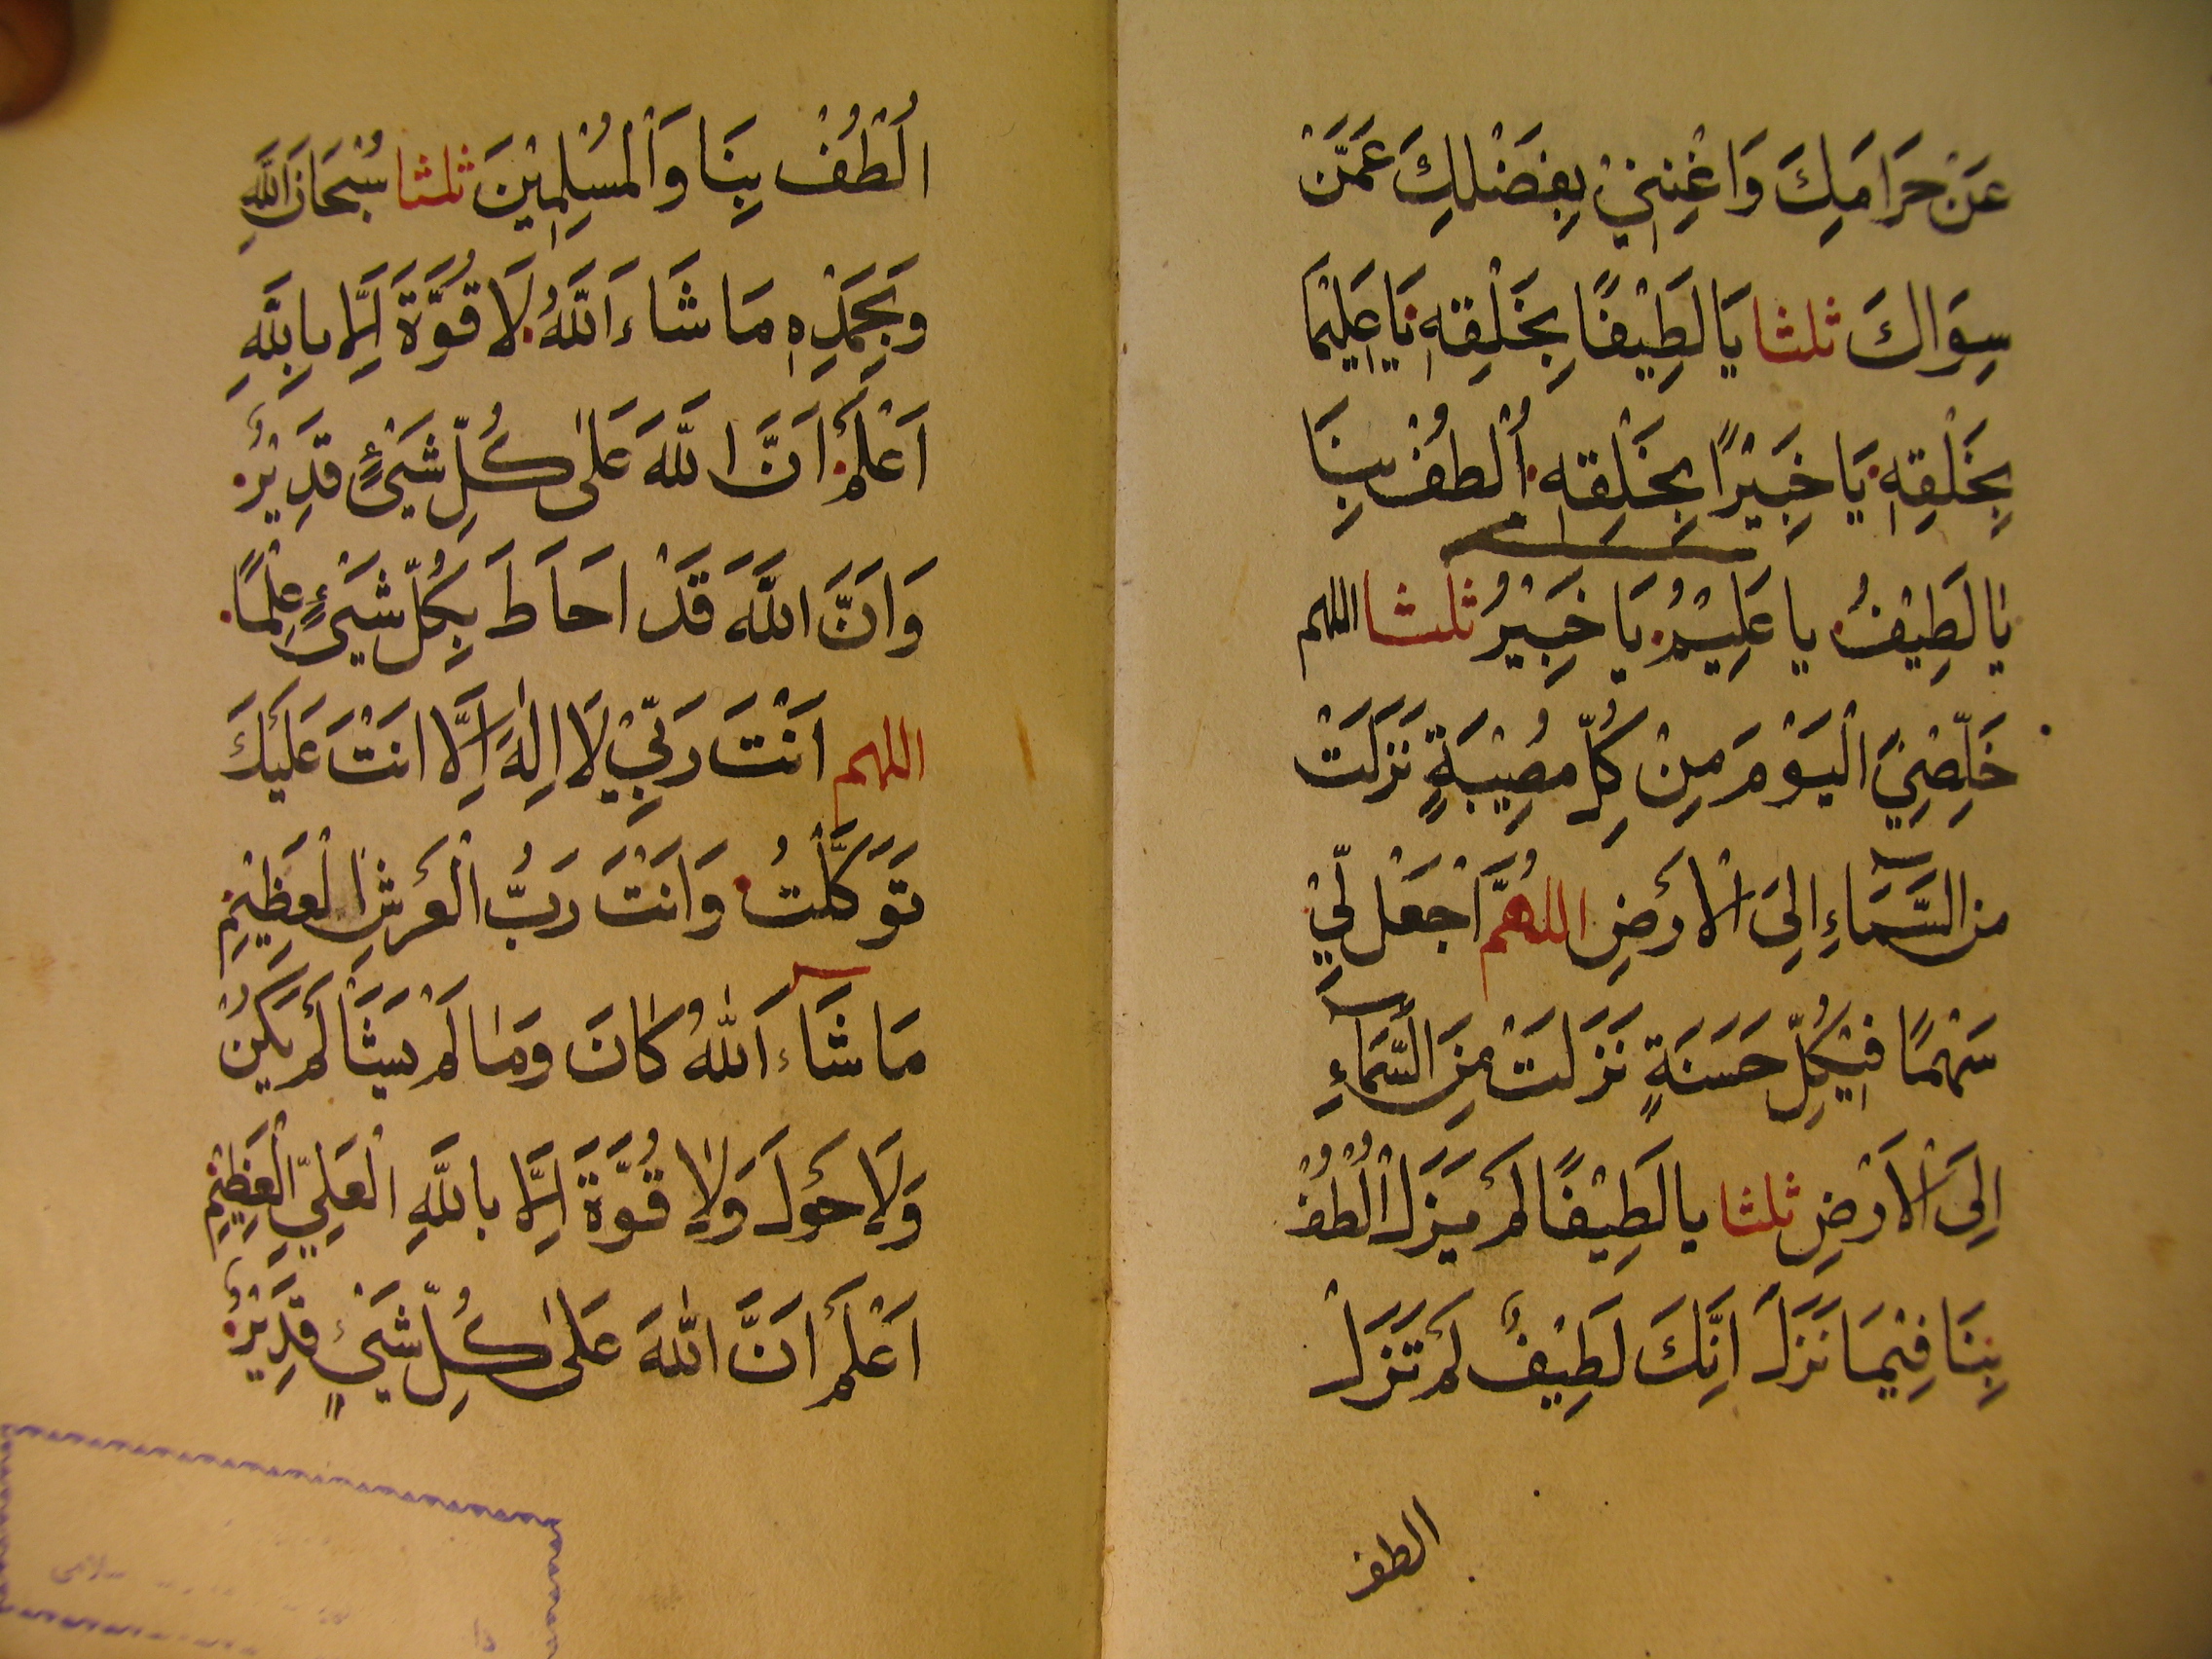 عَنْ حَرَامِكَ وَاغْنِنِيْ بِفَضْلِكَ عَمَّنْ
سِوَاكَ ثلثا يَا لَطِيْفًا بِخَلْقِهٖ يَا عَلِيْمًا
بِخَلْقِهٖ يَا خَبِيْرًا بِخَلْقِهٖ اُلْطُفْ بِنَا
يَا لَطِيْفُ يا عَلِيْمُ يَا خَبِيْرُ ثلثا اللهم
خَلِّصْنِيَ الْيَوْمَ مِنْ كُلِّ مُصِيْبَةٍ نَزَلَتْ
من السَّمَاءِ اِلىَ الْاَرْضِ اللهُمَّ اجْعَلْ لِّيْ
سَهْمًا فِيْ كُلِّ حَسَنَةٍ نَزَلَتْ مِنَ السَّمَاءِ
اِلىَ الْاَرْضِ ثلثا يا لَطِيْفًا لَمْ يَزَلْ اُلْطُفْ
بِنَا فِيْمَا نَزَلَ اِنَّكَ لَطِيْفٌ لَمْ تَزَلْ
الطف
اُلْطُفْ بِنَا وَالْمُسْلِمِيْنَ ثلثا سُبْحَانَ اللهِ
وَبِحَمْدِهٖ مَا شَاءَ اللّٰهُ لَا قُوَّةَ اِلَّا بِاللّٰهِ
اَعْلَمُ اَنَّ اللّٰهَ عَلىٰ كُلِّ شَيْءٍ قَدِيْرٌ
وَاَنَّ اللّٰهَ قَدْ اَحَاطَ بِكُلِّ شَيْءٍ عِلْمًا
اللهم اَنْتَ رَبِّيْ لَا اِلٰهَ اِلَّا اَنْتَ عَلَيْكَ
تَوَكَّلْتُ وَاَنْتَ رَبُّ الْعَرْشِ الْعَظِيْمِ
مَا شَاءَ اللّٰهُ كَانَ وَمَا لَمْ يَشَأْ لَمْ يَكُنْ
وَلَا حَوْلَ وَلَا قُوَّةَ اِلَّا بِاللّٰهِ الْعَلِيِّ الْعَظِيْمِ
اَعْلَمُ اَنَّ اللّٰهَ عَلىٰ كُلِّ شَيْءٍ قَدِيْرٌ